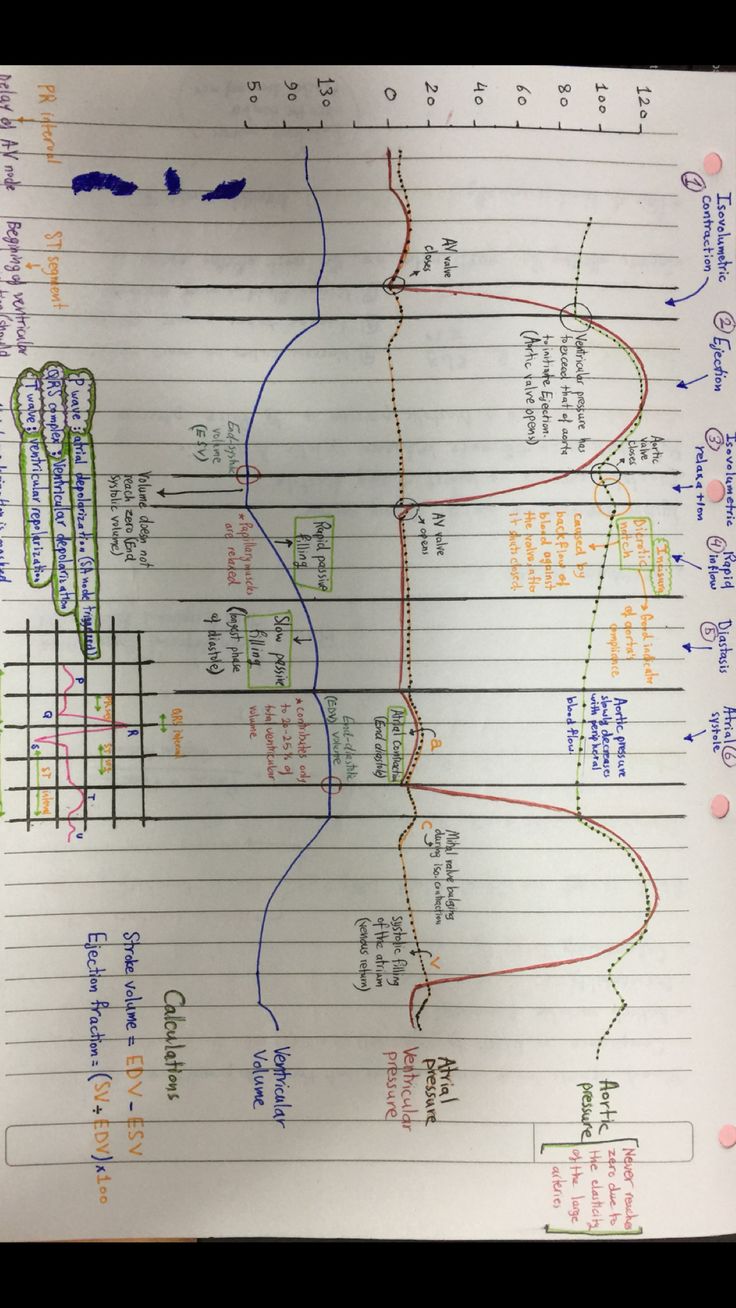 120
100
80
60
40
20
0
130
90
50
① Isovolumetric
contraction
② Ejection
③ Isovolumetric
relaxation
④ Rapid
inflow
Diastasis
⑤
Atrial ⑥
systole
AV valve
closes
Ventricular pressure has
to exceed that of aorta
to initiate Ejection.
(Aortic valve opens)
Aortic
valve
closes
AV valve
opens
Dicrotic
notch
caused by
backflow of
blood against
the valves after
it shuts closed
Good indicator
of aorta's
compliance
Aortic pressure
slowly decreases
with peripheral
blood flow.
Atrial
(End diastole)
a
c
Mitral valve bulging
during iso. contraction
v
Systolic filling
of the atrium
(venous return)
Aortic
pressure
Never reaches
zero due to
the elasticity
of the large
arteries
Atrial
pressure
Ventricular
pressure
Ventricular
Volume
End-systolic
volume
(ESV)
Volume does not
reach zero (End
systolic volume)
Rapid passive
filling
* Papillary muscles
are relaxed
Slow passive
filling
(longest phase
of diastole)
End-diastolic
(EDV) volume
* contributes only
to 20-25% of
total ventricular
volume
PR interval
Delay of AV node
ST segment
Begining of ventricular
P wave : atrial depolarization (SA node triggered)
QRS complex : Ventricular depolarization
T wave : ventricular repolarization
QRS interval
R
P
Q
S
T
U
ST
Calculations
Stroke volume = EDV - ESV
Ejection fraction = (SV ÷ EDV) x 100